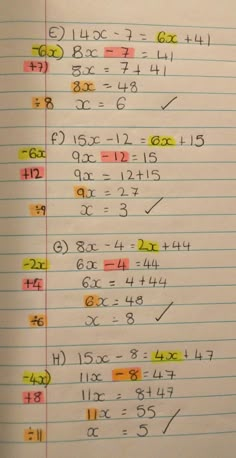 E) 14x - 7 = 6x + 41
-6x) 8x - 7 = 41
+7) 8x = 7 + 41
8x = 48
÷8 x = 6 ✓
F) 15x - 12 = 6x + 15
-6x 9x - 12 = 15
+12 9x = 12 + 15
9x = 27
÷9 x = 3 ✓
G) 8x - 4 = 2x + 44
-2x 6x - 4 = 44
+4 6x = 4 + 44
6x = 48
÷6 x = 8 ✓
H) 15x - 8 = 4x + 47
-4x) 11x - 8 = 47
+8 11x = 8 + 47
11x = 55
÷11 x = 5 ✓